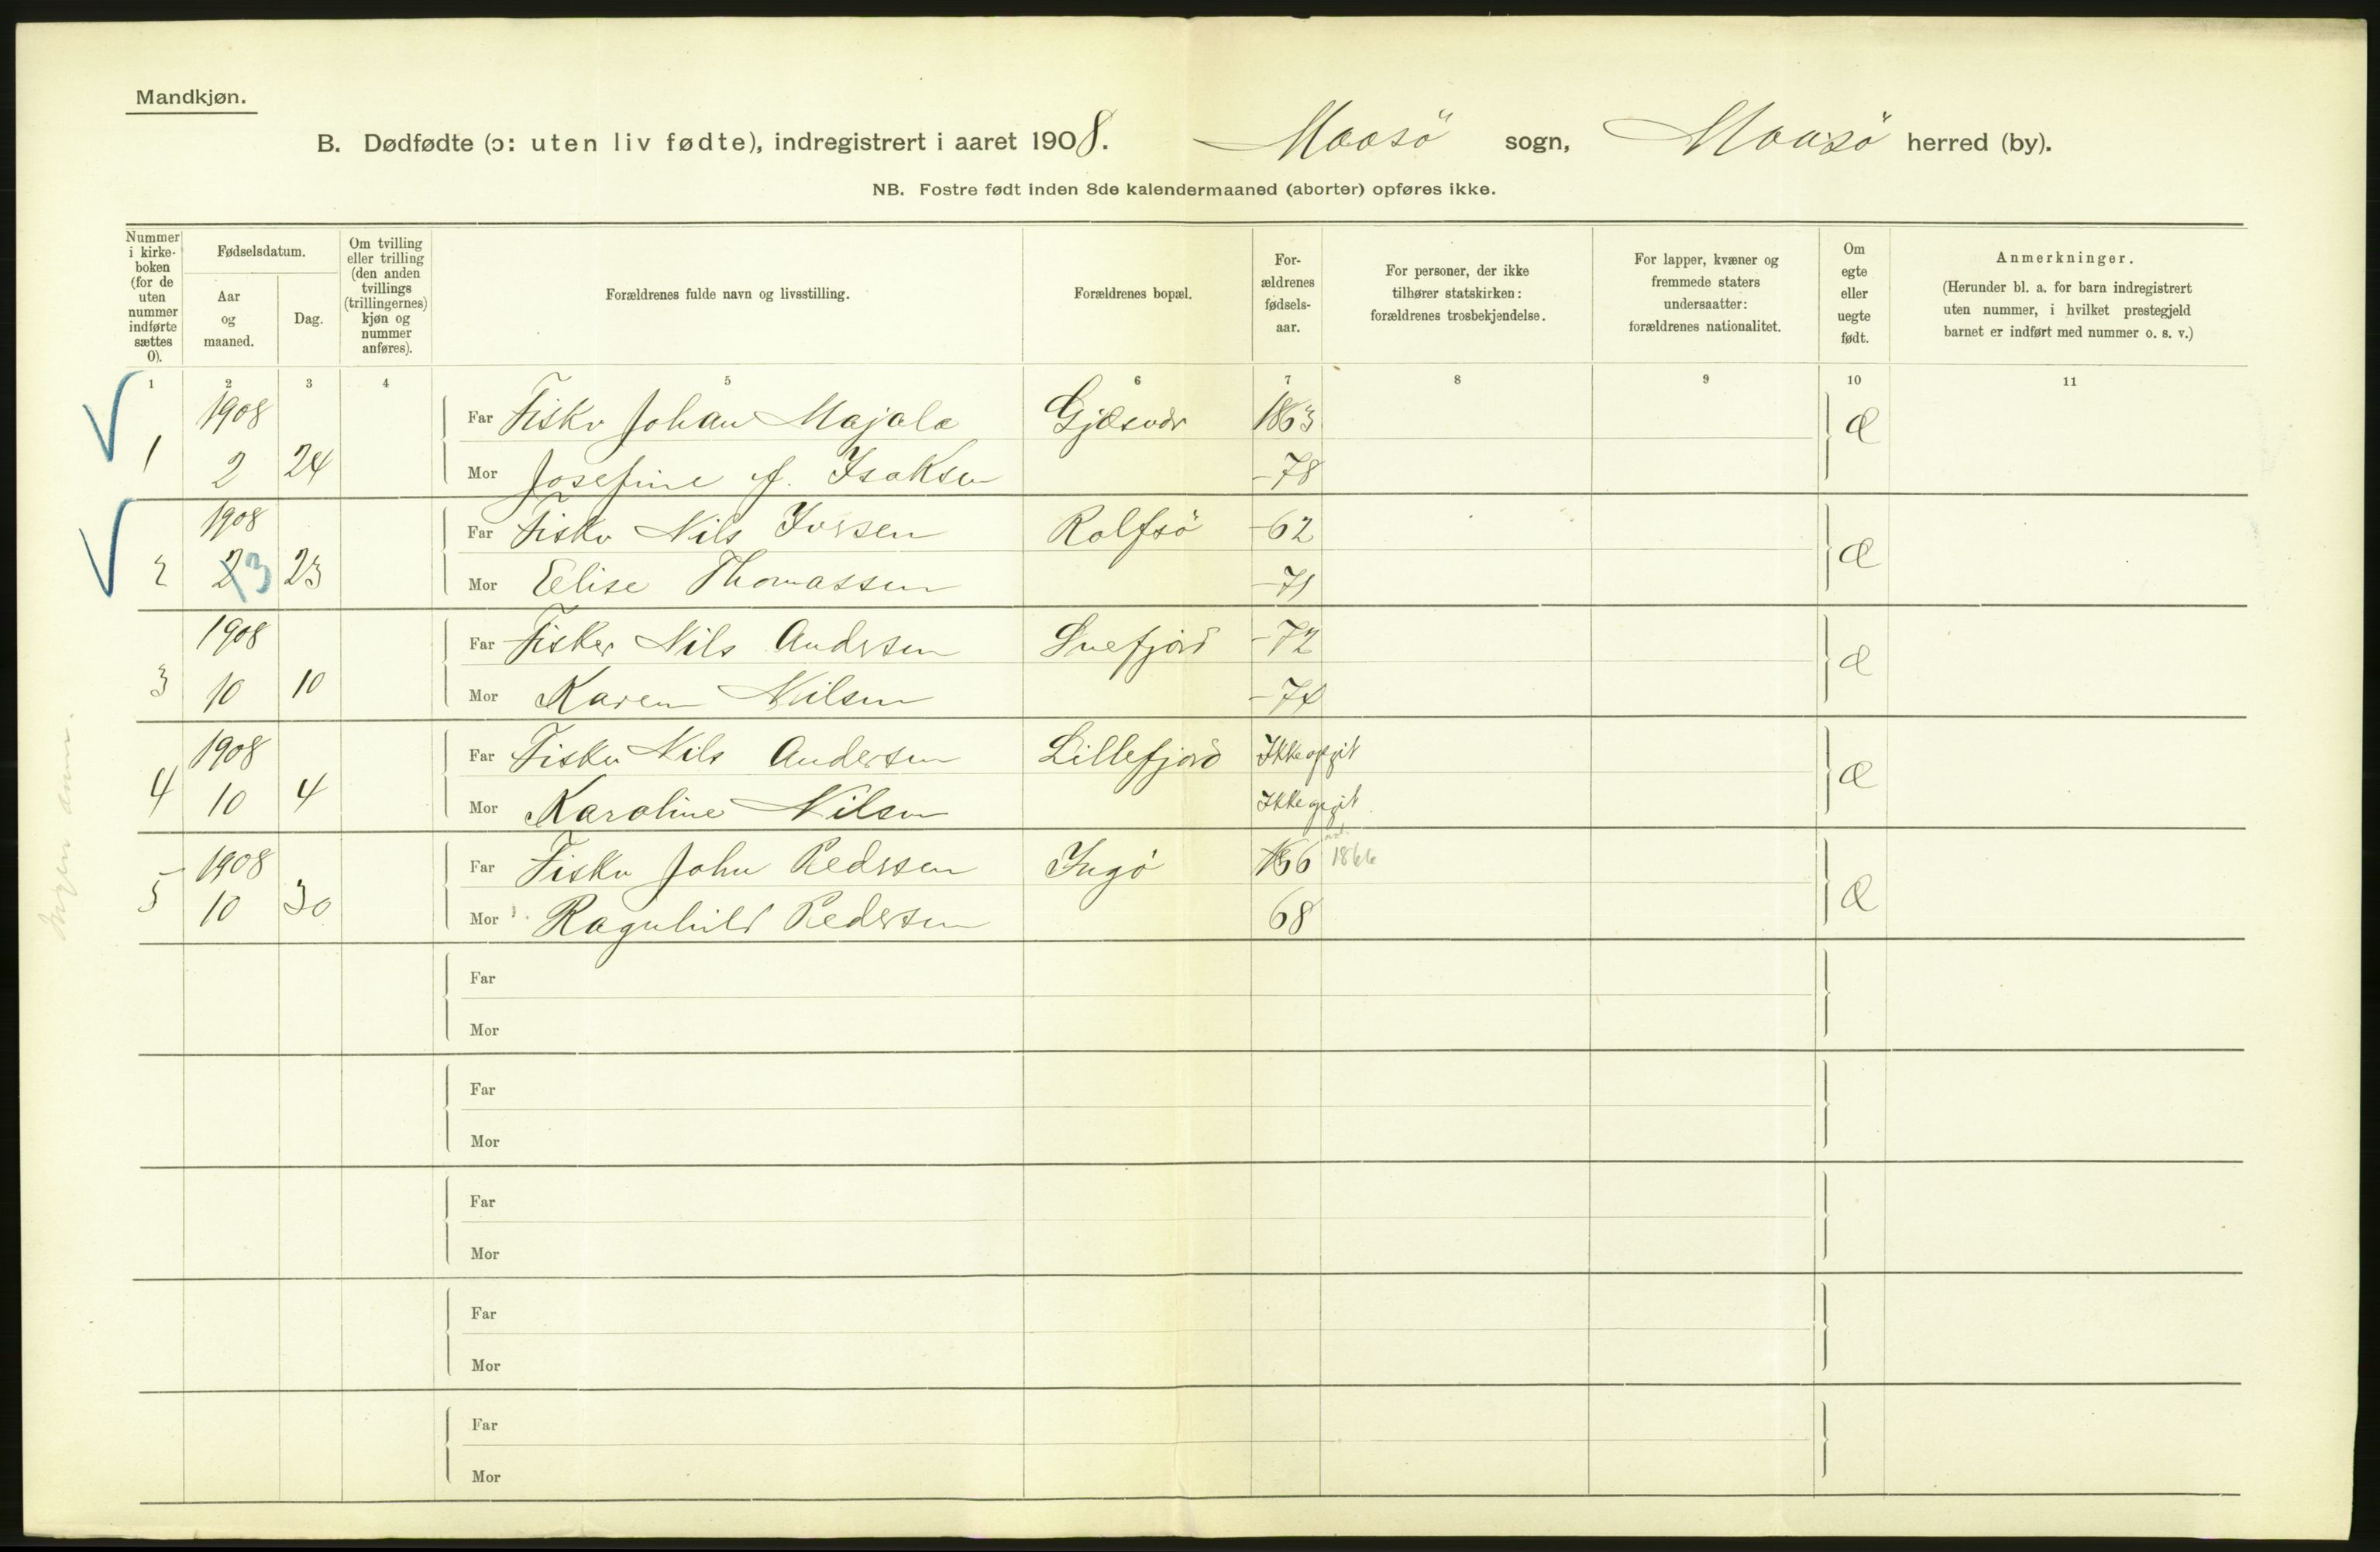 Mandkjøn.
B. Dødfødte (ɔ: uten liv fødte), indregistrert i aaret 1908. Maasö sogn, Maasö herred (by).
NB. Fostre født inden 8de kalendermaaned (aborter) opføres ikke.
Nummer i kirke-boken (for de uten nummer indførte sættes 0).
Fødselsdatum.
Aar og maaned.
Dag.
Om tvilling eller trilling (den anden tvillings (trillingernes) kjøn og nummer anføres).
Forældrenes fulde navn og livsstilling.
Forældrenes bopæl.
For-ældrenes fødsels-aar.
For personer, der ikke tilhører statskirken: forældrenes trosbekjendelse.
For lapper, kvæner og fremmede staters undersaatter: forældrenes nationalitet.
Om egte eller uegte født.
Anmerkninger.
(Herunder bl. a. for barn indregistrert uten nummer, i hvilket prestegjeld barnet er indført med nummer o. s. v.)
1 2 3 4 5 6 7 8 9 10 11
1908 Far Fisker Johan Majala Gjæsvær 1863 Æ
1 2 24 Mor Josefine J. Isaksen -78
1908 Far Fisker Nils Iversen Rolfsö -62 Æ
2 2 3 23 Mor Elise Thomassen -71
1908 Far Fisker Nils Andersen Snefjord -72 Æ
3 10 10 Mor Karen Nilsen -74
1908 Far Fisker Nils Andersen Lillefjord Ikke opgit Æ
4 10 4 Mor Karoline Nilsen Ikke opgit.
5 1908 Far Fisker John Pedersen Ingö 1866 Æ
10 30 Mor Ragnhild Pedersen 68
Far
Mor
Far
Mor
Far
Mor
Far
Mor
Far
Mor